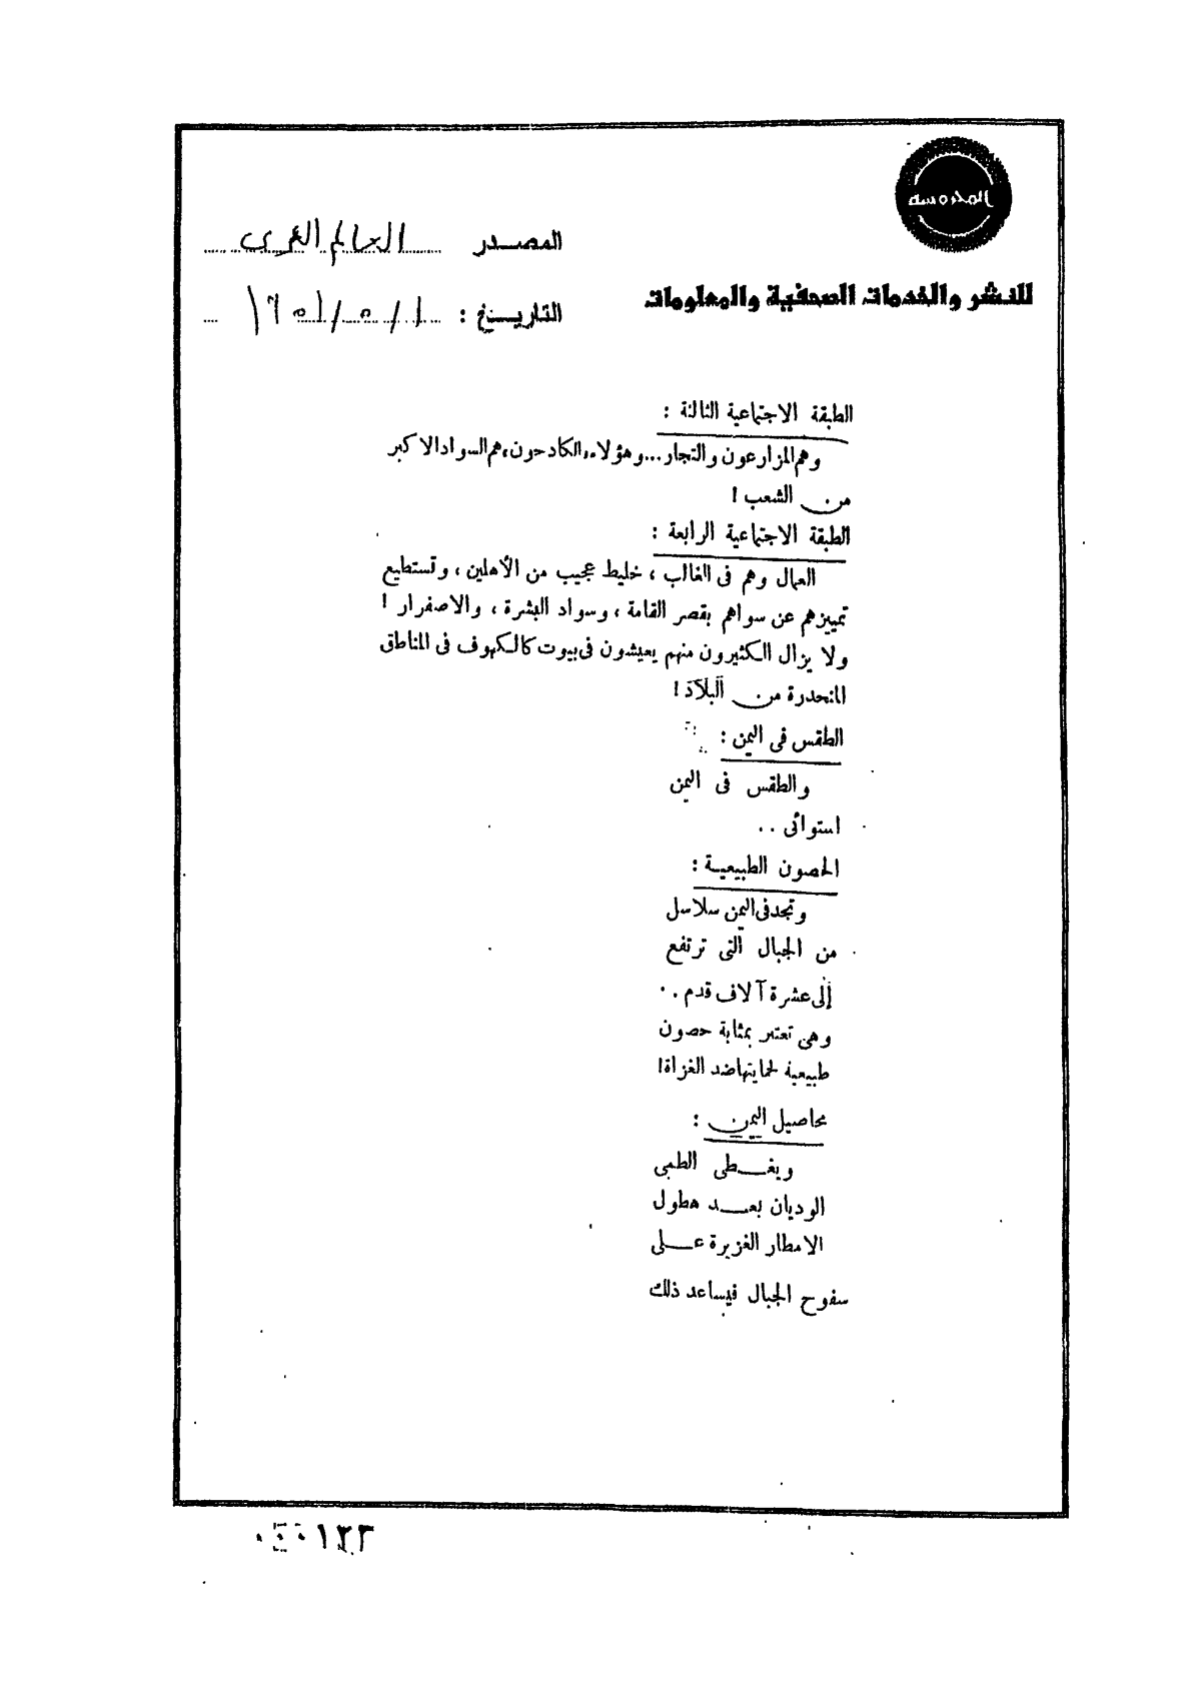 المحروسة
للنشر والخدمات الصحفية والمعلومات
المصدر العالم العربى
التاريخ :
الطبقة الاجتماعية الثالثة :
وهم المزارعون والتجار... وهؤلاء، الكادحون، هم السواد الاكبر
من الشعب !
الطبقة الاجتماعية الرابعة :
العمال وهم فى الغالب ، خليط عجيب من الأهلين ، وتستطيع
تمييزهم عن سواهم بقصر القامة ، وسواد البشرة ، والاصفرار !
ولا يزال الكثيرون منهم يعيشون فى بيوت كالكهوف فى المناطق
المنحدرة من البلاد !
الطقس فى اليمن :
والطقس فى اليمن
استوائى ..
الحصون الطبيعية :
وتجد فى اليمن سلاسل
من الجبال التى ترتفع
إلى عشرة آلاف قدم ..
وهى تعتبر بمثابة حصون
طبيعية لحمايتها ضد الغزاة !
محاصيل اليمن :
ويغطى الطمى
الوديان بعد هطول
الامطار الغزيرة على
سفوح الجبال فيساعد ذلك